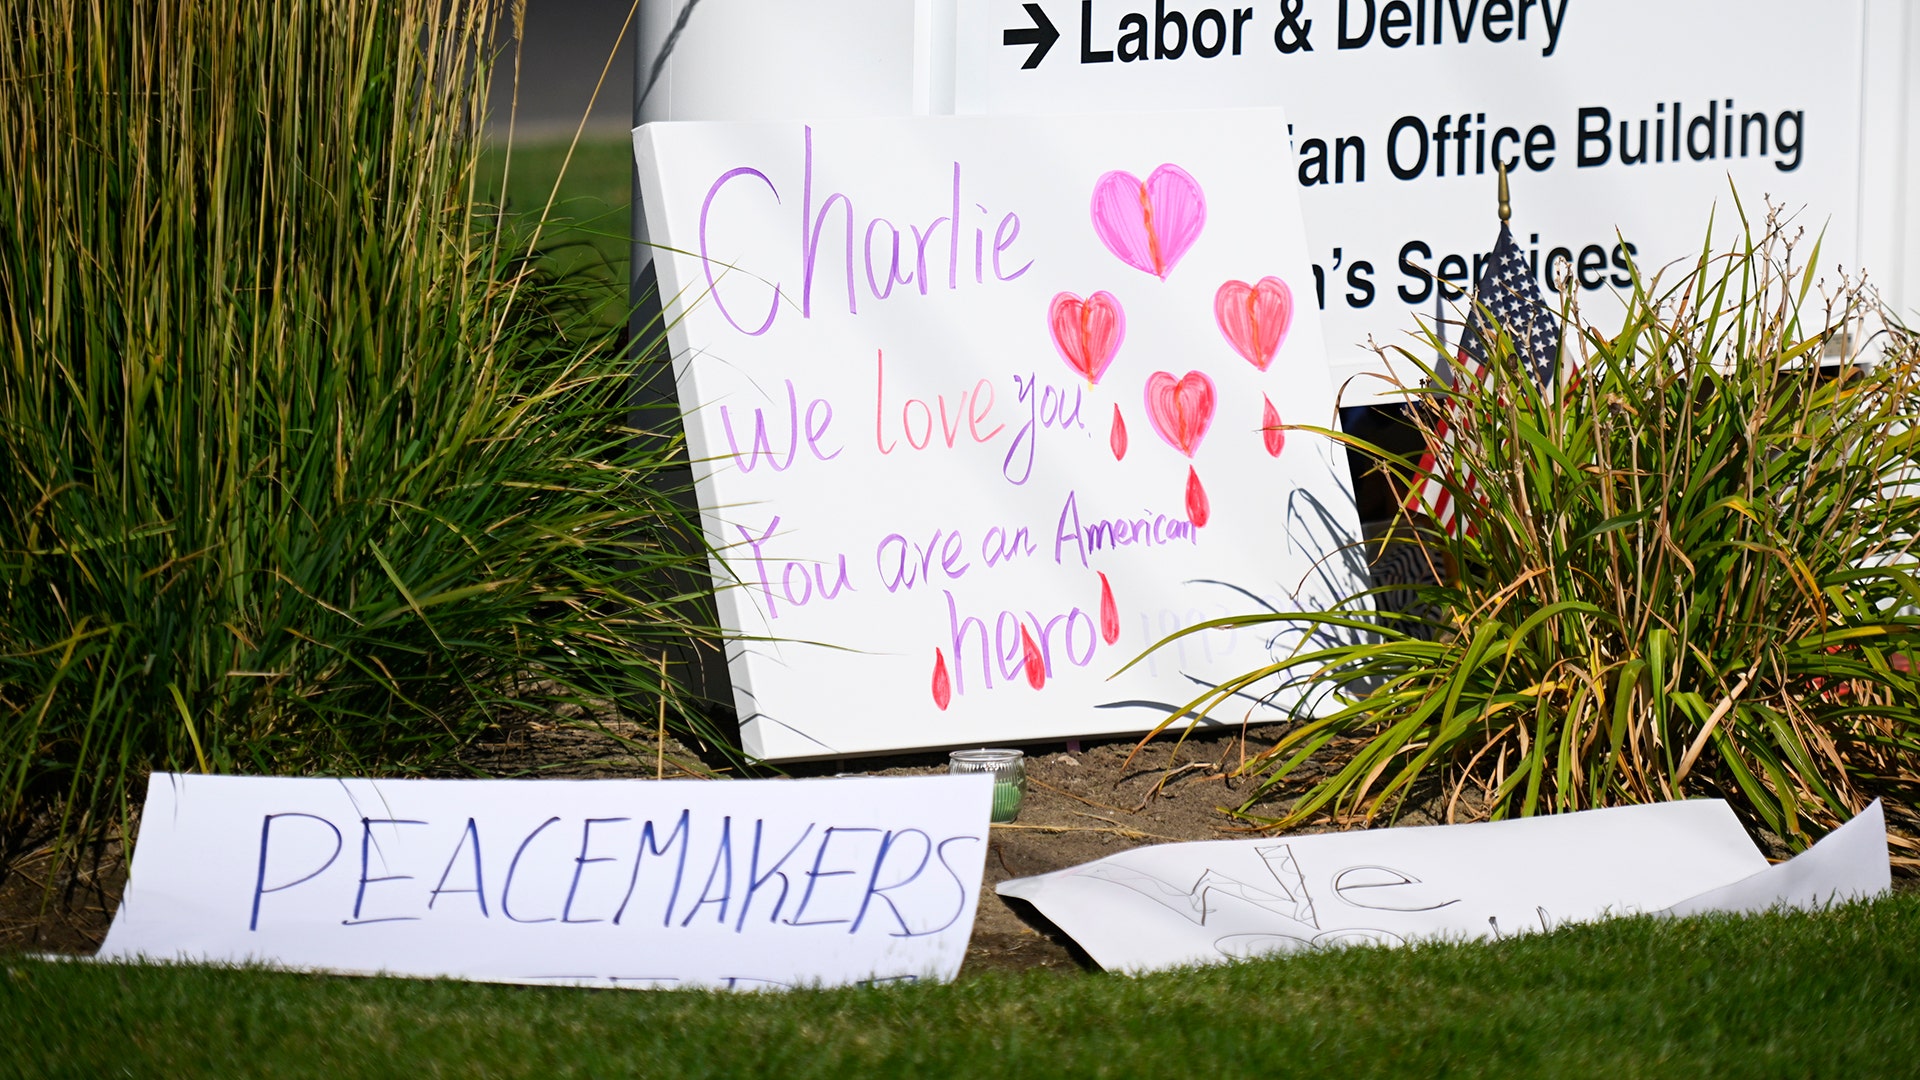 → Labor & Delivery
Office Building
Services
Charlie
We love you
You are an American
hero
PEACEMAKERS
We